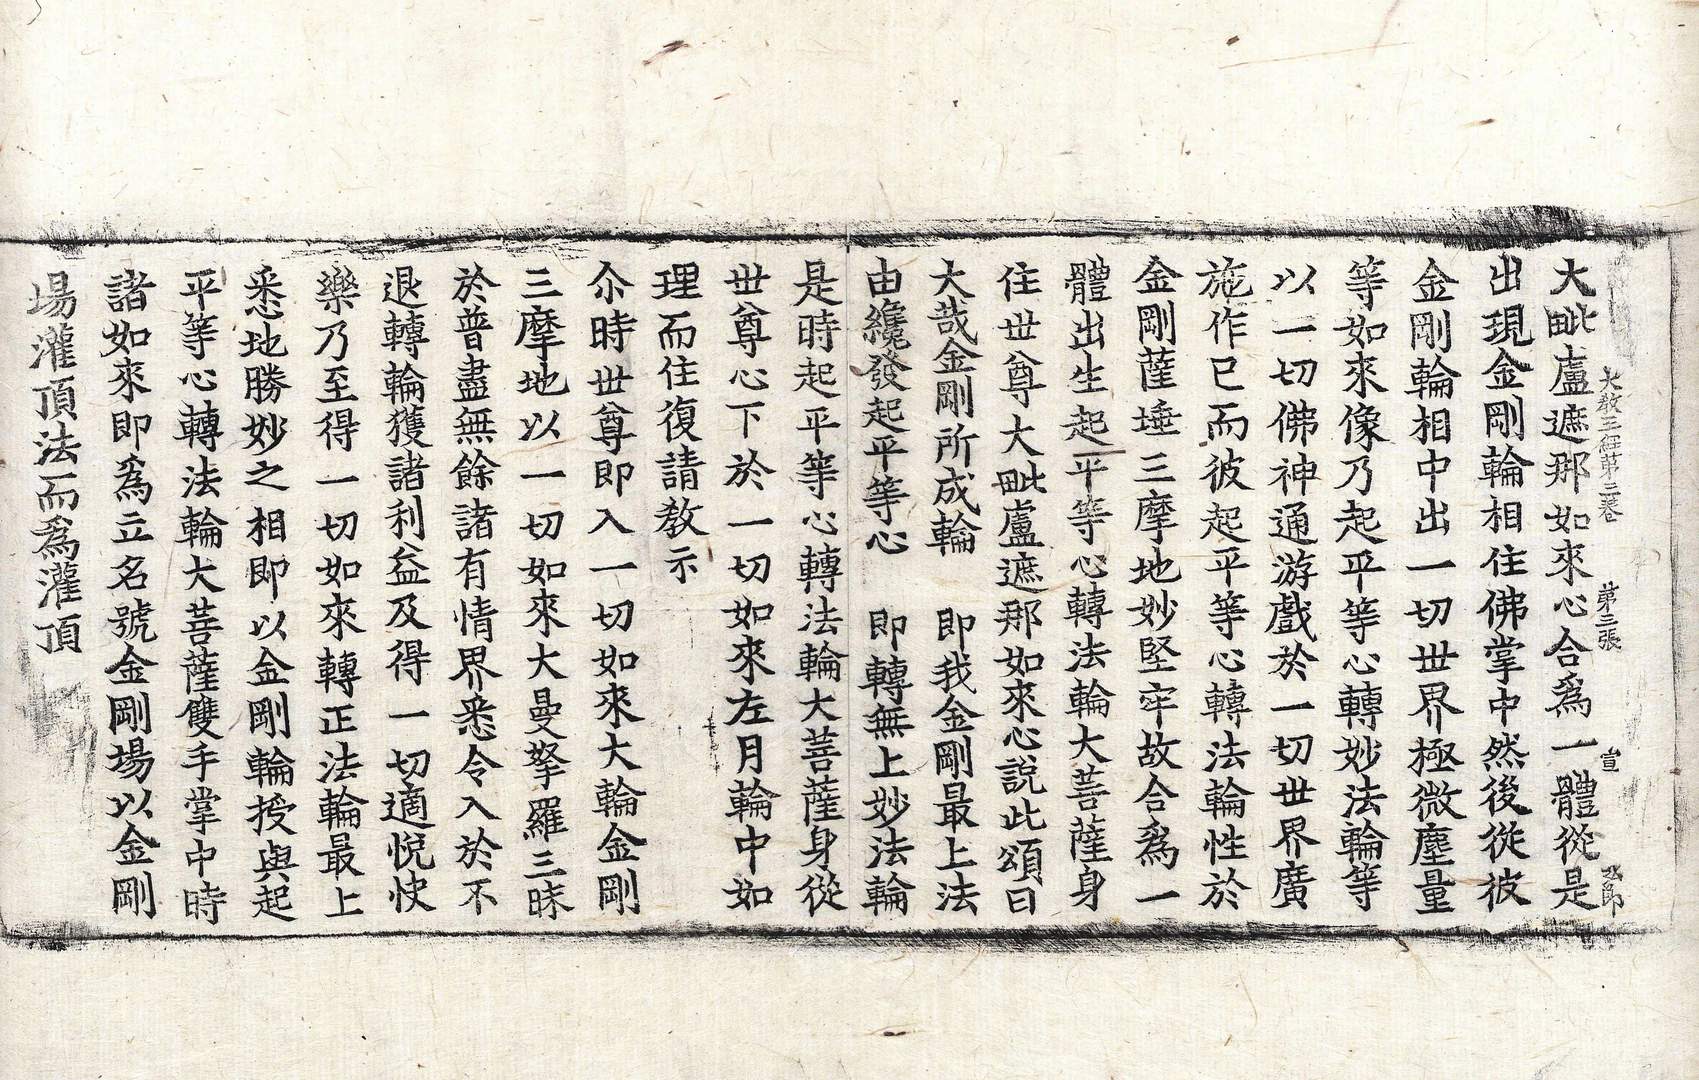 大教王經第三卷　第三張　宣
大毗盧遮那如來心合爲一體從是
出現金剛輪相住佛掌中然後從彼
金剛輪相中出一切世界極微塵量
等如來像乃起平等心轉妙法輪等
以一切佛神通游戲於一切世界廣
施作已而彼起平等心轉法輪性於
金剛薩埵三摩地妙堅牢故合爲一
體出生起平等心轉法輪大菩薩身
住世尊大毗盧遮那如來心說此頌曰
大哉金剛所成輪　即我金剛最上法
由纔發起平等心　即轉無上妙法輪
是時起平等心轉法輪大菩薩身從
世尊心下於一切如來左月輪中如
理而住復請敎示
尒時世尊即入一切如來大輪金剛
三摩地以一切如來大曼拏羅三昧
於普盡無餘諸有情界悉令入於不
退轉輪獲諸利益及得一切適悅快
樂乃至得一切如來轉正法輪最上
悉地勝妙之相即以金剛輪授與起
平等心轉法輪大菩薩雙手掌中時
諸如來即爲立名號金剛場以金剛
場灌頂法而爲灌頂